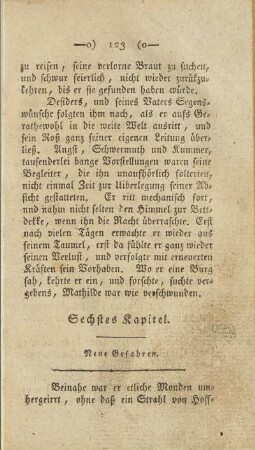 —o) 123 (o—
zu reisen, seine verlorne Braut zu suchen,
und schwur feierlich, nicht wieder zurükzu-
kehren, bis er sie gefunden haben würde.
Desiders, und seines Vaters Segens-
wünsche folgten ihm nach, als er aufs Ge-
rathewohl in die weite Welt ausritt, und
sein Roß ganz seiner eigenen Leitung über-
ließ. Angst, Schwermuth und Kummer,
tausenderlei bange Vorstellungen waren seine
Begleiter, die ihn unaufhörlich folterten,
nicht einmal Zeit zur Uiberlegung seiner Ab-
sicht gestatteten. Er ritt mechanisch fort,
und nahm nicht selten den Himmel zur Bett-
dekke, wenn ihn die Nacht überraschte. Erst
nach vielen Tägen erwachte er wieder aus
seinem Taumel, erst da fühlte er ganz wieder
seinen Verlust, und verfolgte mit erneuerten
Kräften sein Vorhaben. Wo er eine Burg
sah, kehrte er ein, und forschte, suchte ver-
gebens, Mathilde war wie verschwunden.
Sechstes Kapitel.
Neue Gefahren.
Beinahe war er etliche Monden um-
hergeirrt, ohne daß ein Strahl von Hoff-